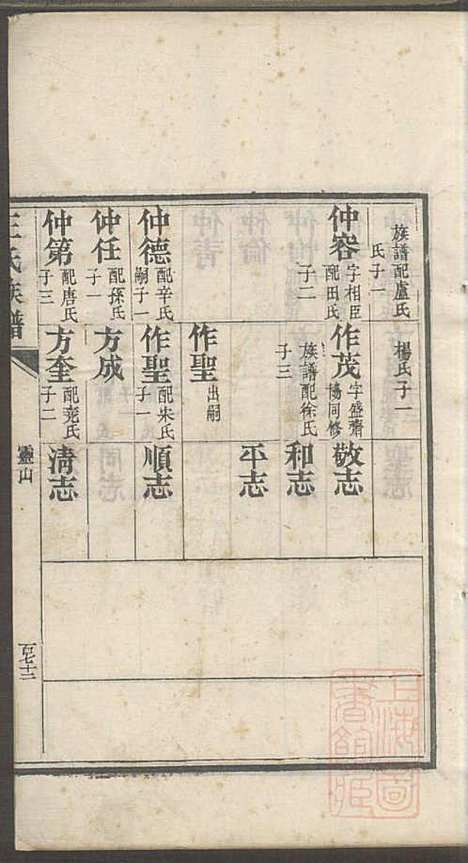 族譜配盧氏
氏子一
楊氏子一
仲容 字相臣
配田氏
子二
作茂 字盛齋
協同修
族譜配徐氏
子三
敬志
和志
平志
作聖 出嗣
仲德 配辛氏
嗣子一
作聖 配朱氏
子一
順志
仲任 配孫氏
子一
方成
仲第 配唐氏
子三
方奎 配堯氏
子二
清志
王氏族譜
靈山
百七十二